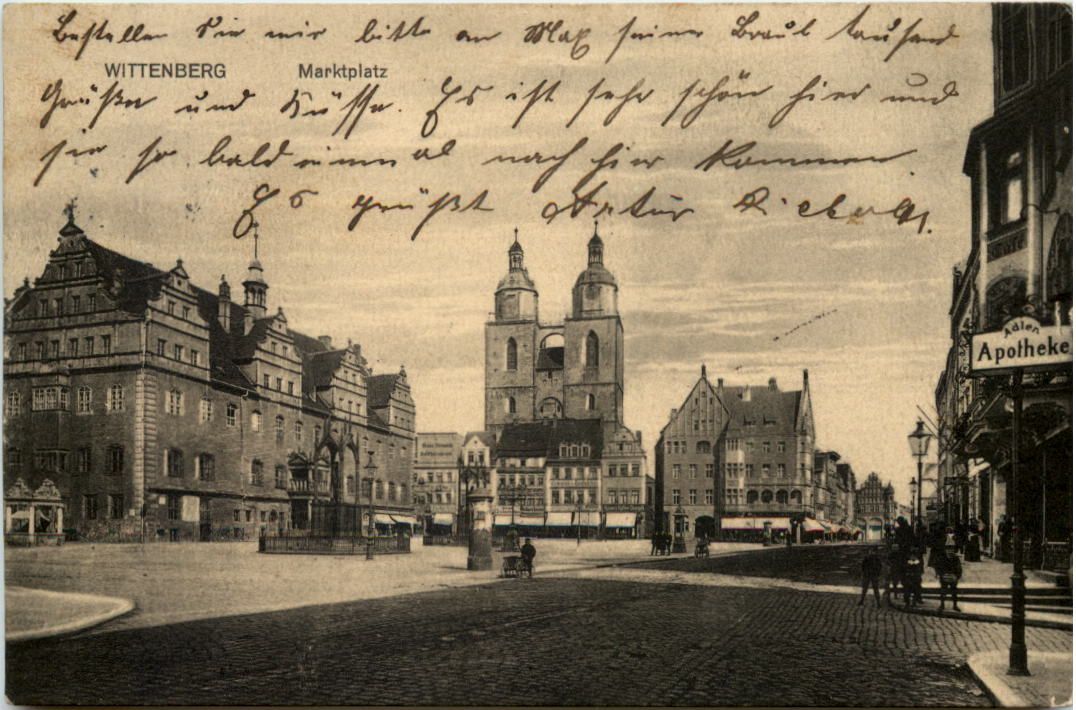 Bestellen Sie mir bitte an Max seiner Braut tausend
WITTENBERG Marktplatz
Grüße und Küsse. Es ist sehr schön hier und
sie so bald einmal nach hier kommen
Es grüßt Artur
Adler
Apotheke